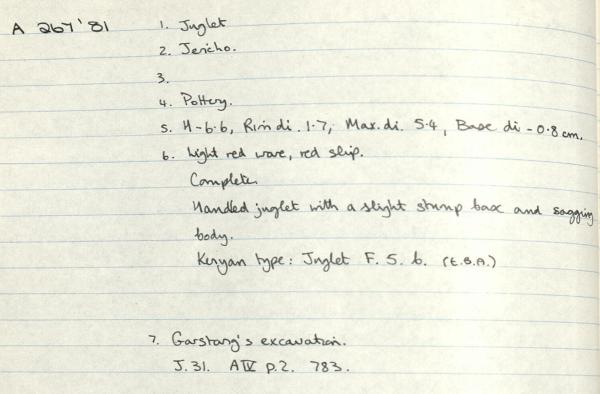 A 267'81
1. Juglet
2. Jericho.
3.
4. Pottery.
5. H-6.6, Rim di. 1.7, Max.di. 5.4, Base di - 0.8 cm.
6. Light red ware, red slip.
Complete.
Handled juglet with a slight stump base and sagging
body.
Kenyan type: Juglet F. 5. b. (E.B.A.)
7. Garstang's excavation.
J.31. A IV p.2. 783.